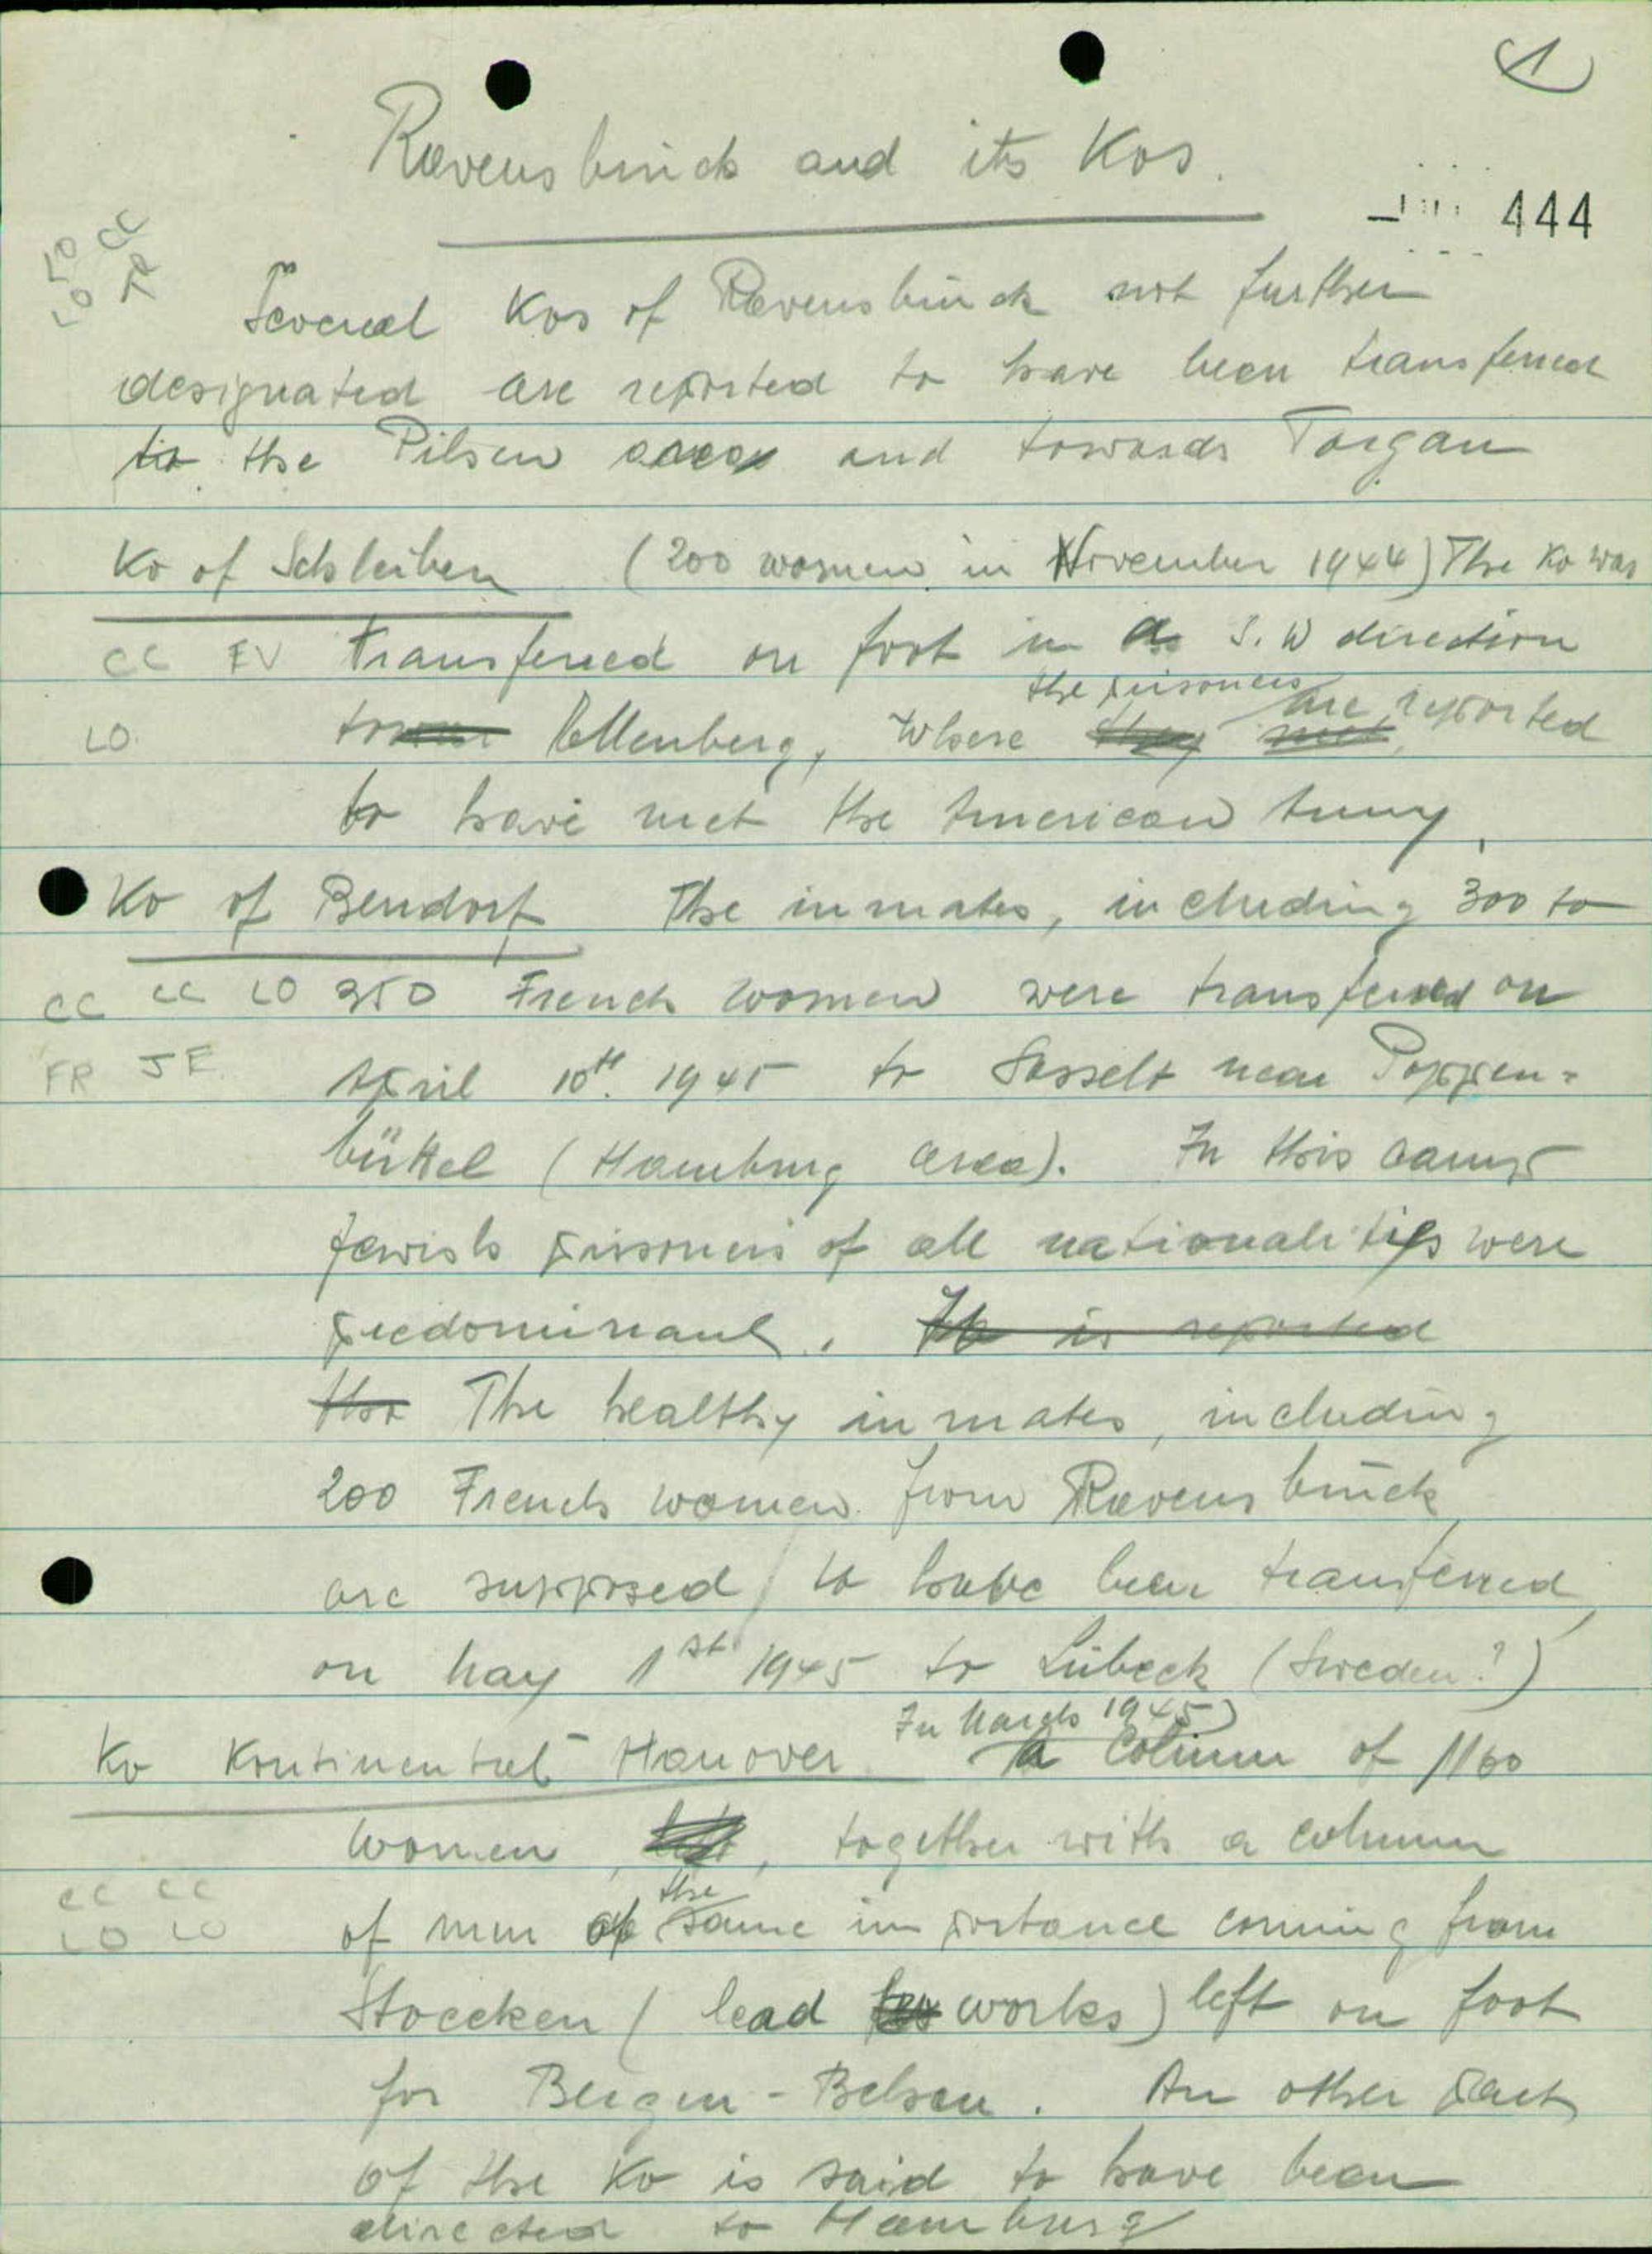 1
Ravensbrück and its Kos.
444
LO TO CC
Several Kos of Ravensbrück not further
designated are reported to have been transferred
to the Pilsen area and towards Torgau
Ko of Schleiben (200 women in November 1944) The Ko was
CC EV transferred on foot in a S.W direction
the prisoners are reported
LO Ellenberg, where
to have met the American Army.
Ko of Bendorf The inmates, including 300 to
CC CC LO 350 French women were transferred on
FR JE April 10th. 1945 to Sasselt near Poppen=
büttel (Hamburg area). In this camp
Jewish prisoners of all nationalities were
predominant. It is reported
tha The healthy inmates, including
200 French women from Ravensbrück
are supposed to have been transferred
on May 1st 1945 to Lübeck (Sweden?)
In March 1945
Ko Kontinental Hanover a column of 1160
women, together with a column
CC CC
the
LO LO of men of same importance coming from
Stoecken (lead works) left on foot
for Bergen-Belsen. An other part
of the Ko is said to have been
directed to Hamburg